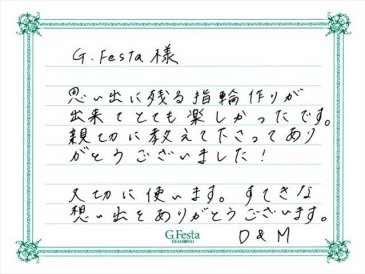 G.Festa様
思い出に残る指輪作りが
出来てとても楽しかったです。
親切に教えて下さってあり
がとうございました！
大切に使います。すてきな
想い出をありがとうございます。
G.Festa
DIAMOND
D & M